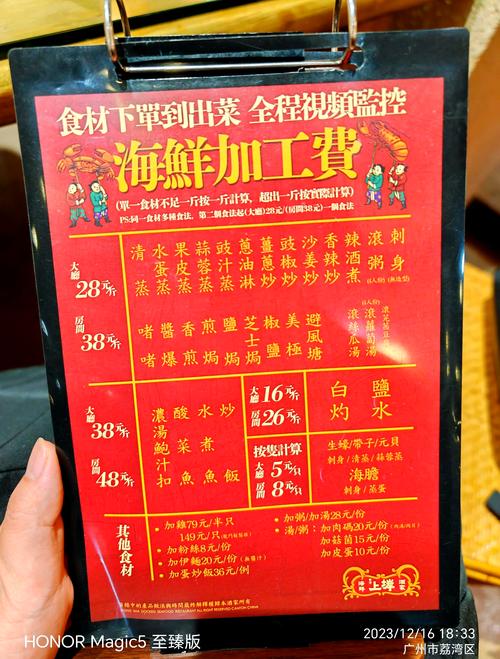 食材下單到出菜 全程視頻監控
海鮮加工費
(單一食材不足一斤按一斤計算，超出一斤按實際計算)
PS:同一食材多種食法，第二個食法起(大廳)28元/(房間38元)一個食法
大廳 28元/斤
房間 38元/斤
清蒸
水蛋蒸
果皮蒸
蒜蓉蒸
豉汁蒸
蔥油淋
薑蔥炒
豉椒炒
沙姜炒
香辣炒
辣酒煮
滾粥
刺身
啫啫
醬爆
香煎
煎焗
鹽焗
芝士焗
椒鹽
美極
避風塘
滾絲瓜湯
滾蘿蔔湯
大廳 38元/斤
房間 48元/斤
濃湯鮑汁扣
酸菜魚
水煮魚
炒飯
大廳 16元/斤
房間 26元/斤
白灼
鹽水
按隻計算
大廳 5元/隻
房間 8元/隻
生蠔/帶子/元貝
刺身/清蒸/蒜蓉蒸
海膽
刺身/蒸蛋
其他食材
·加雞79元/半只
149元/只
·加粉絲8元/份
·加伊麵20元/份
·加蛋炒飯36元/例
·加粥/加湯28元/份
·湯/粥：加肉碼20元/份
加菇菌15元/份
加皮蛋10元/份
上樺
HONOR Magic5 至臻版
2023/12/16 18:33
广州市荔湾区